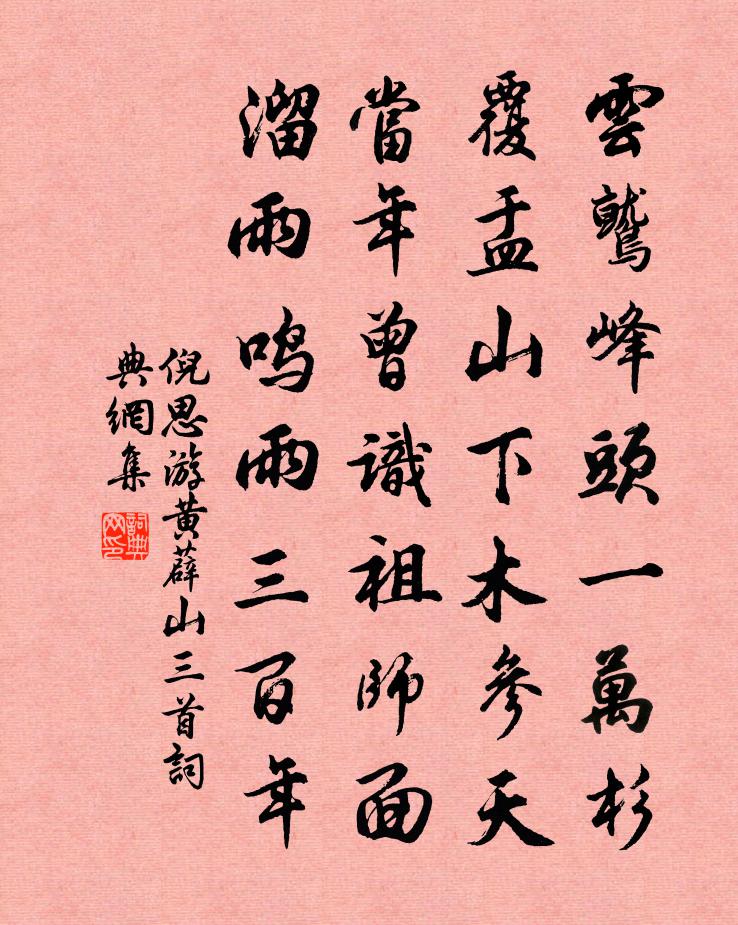 雲鷲峰頭一萬杉
覆盂山下木參天
當年曾識祖師面
溜雨鳴雨三百年
倪思游黄薜山三首詞
典網集
詞典
网印